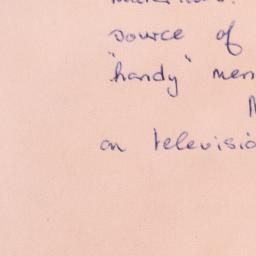 source of
"handy" men
on televisio